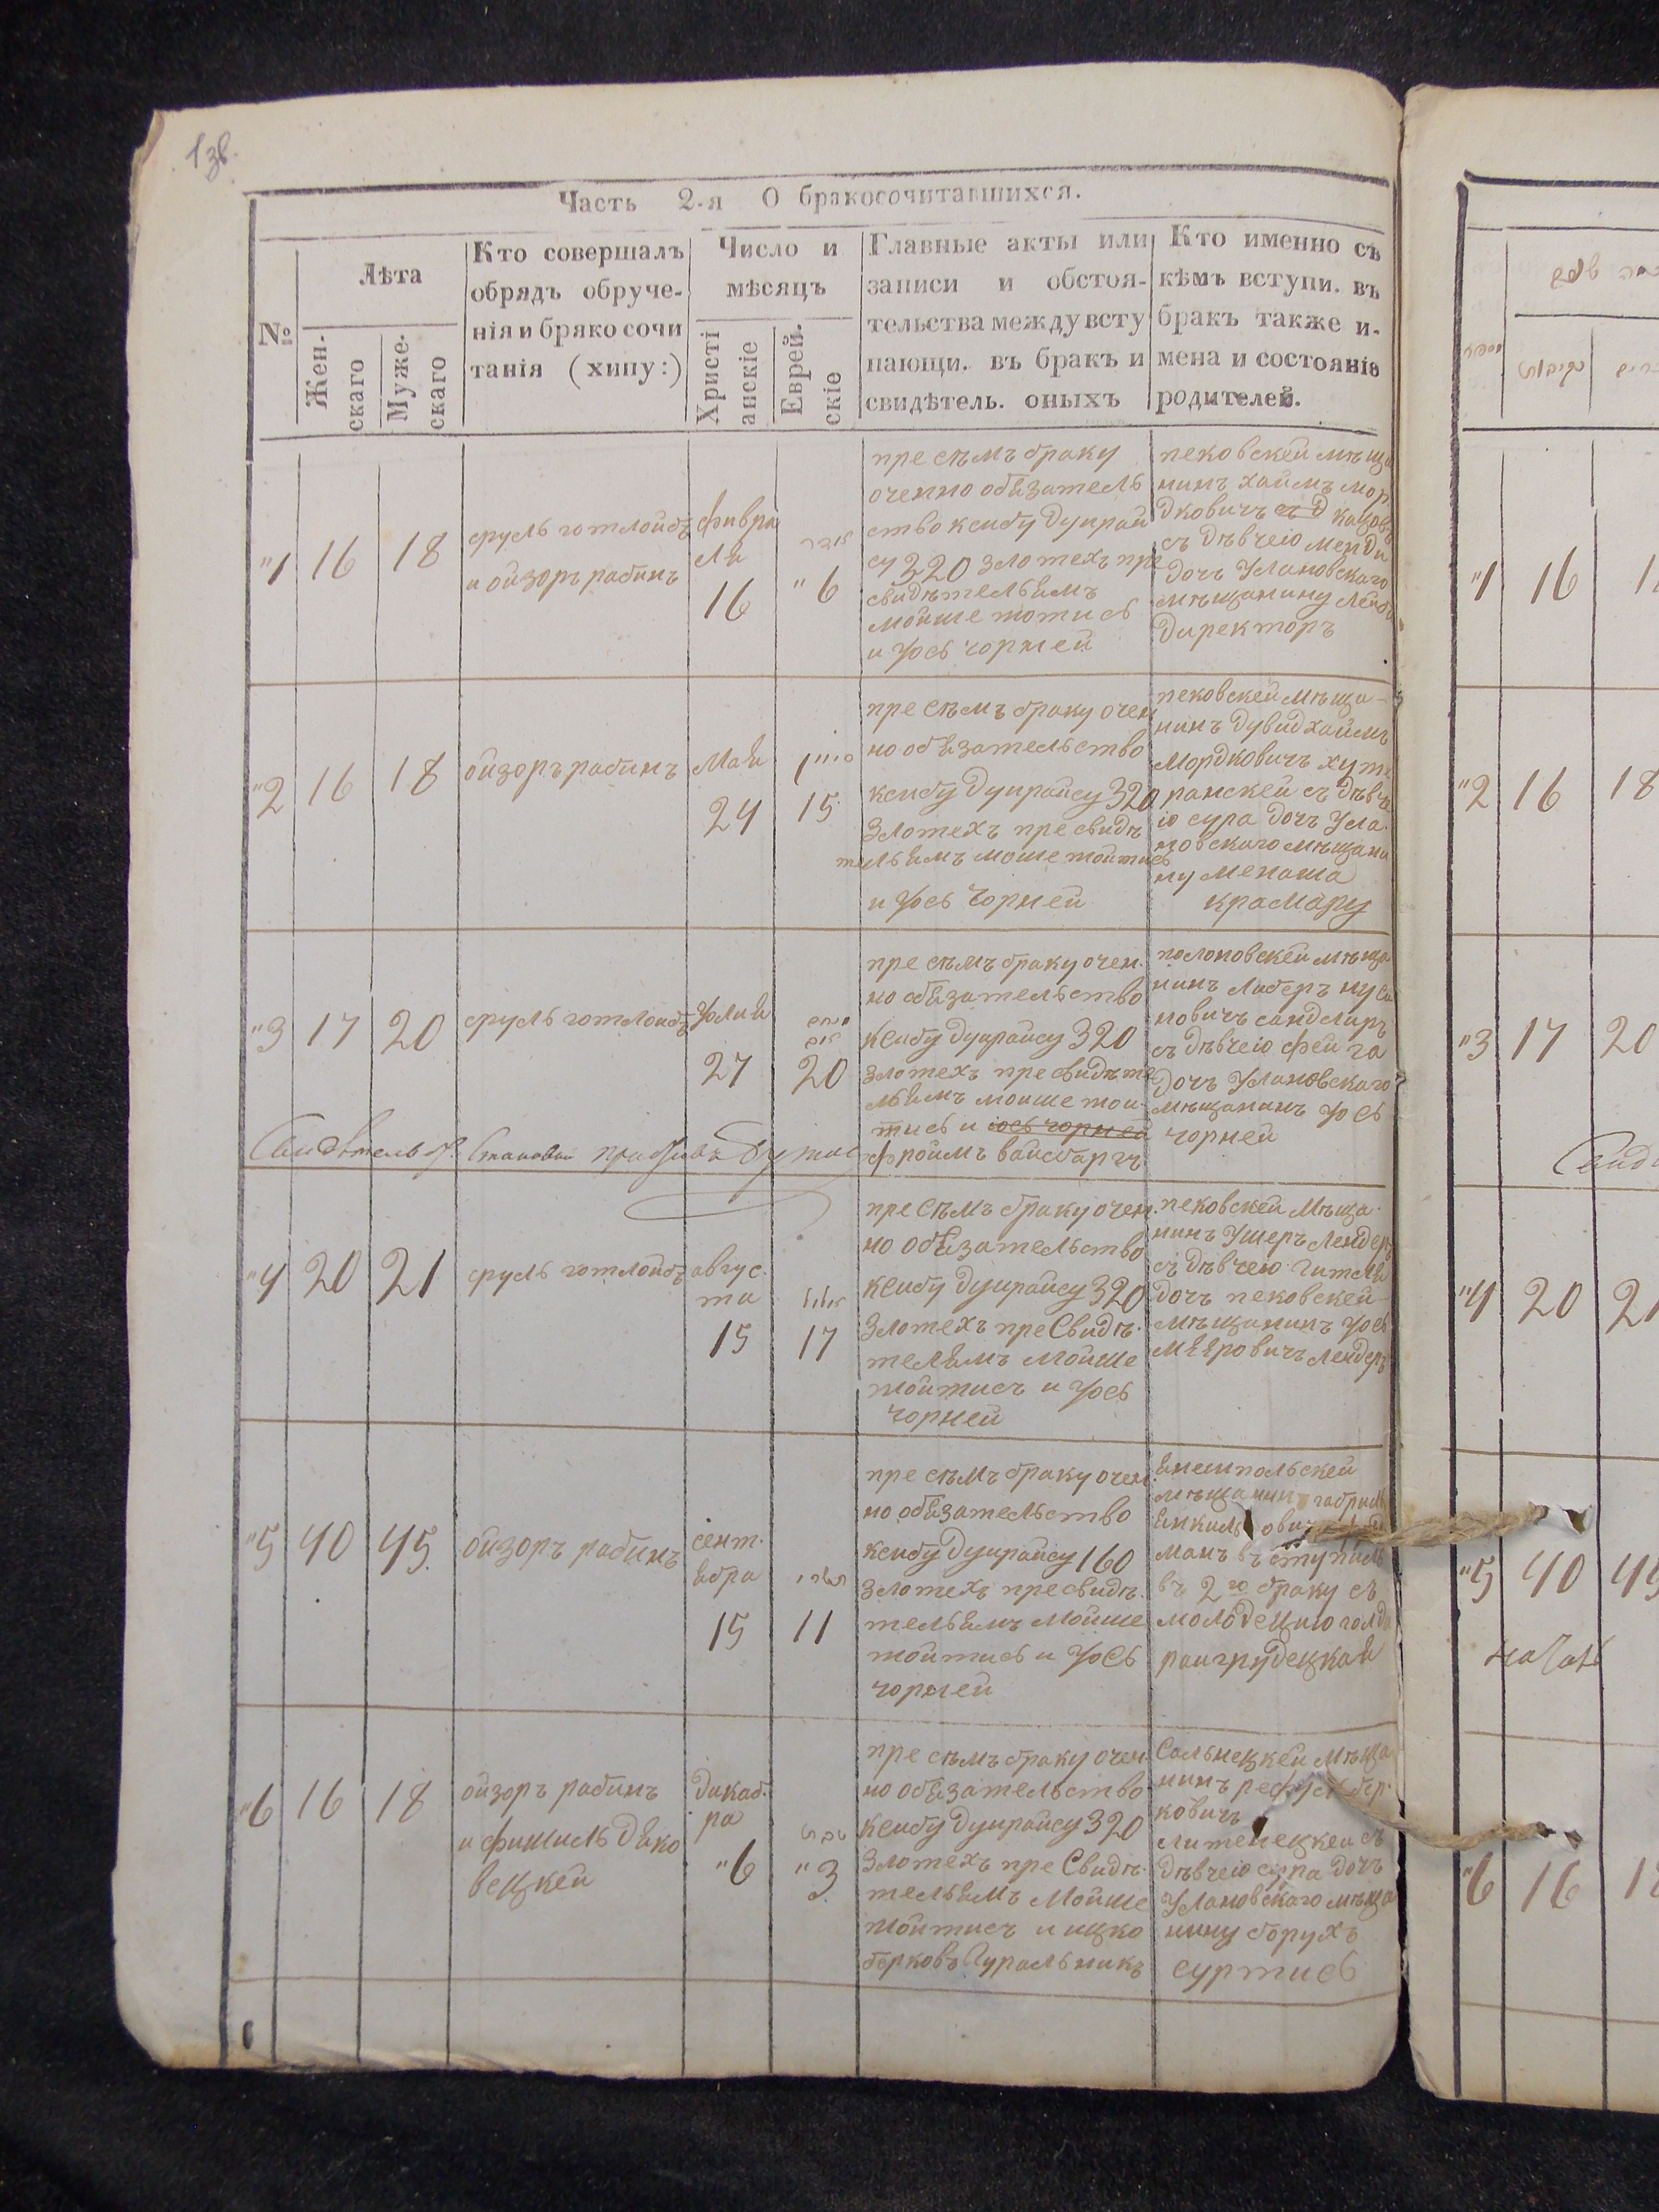 1 зв.
Часть 2-я О бракосочитавшихся.
№
Лѣта
Жен-
скаго
Муже-
скаго
Кто совершалъ
обрядъ обруче-
нія и бряко сочи
танія (хипу:)
Число и
мѣсяцъ
Христі
анскіе
Еврей-
скіе
Главные акты или
записи и обстоя-
тельства между всту
пающи. въ бракъ и
свидѣтель. оныхъ
Кто именно съ
кѣмъ вступи. въ
бракъ также и-
мена и состояніе
родителей.
"1 16 18
сруль готлойбъ
и ойзоръ рабинъ
фивра
ля
16
אדר
"6
пре сѣмъ браку
оченно обязатель
ство ксибу дуирай
су 320 злотехъ пре
свидѣтельямъ
мойше тотись
и Юсь чорней
пековскей мѣща
нинъ хаймъ мор
дковичъ кацовъ
съ дѣвчею менди
дочъ Улановскаго
мѣщанину лейбъ
директоръ
"2 16 18
ойзоръ рабинъ
мая
24
סיון
15
пре сѣмъ браку очен
но обязательство
ксибу дуирайсу 320
злотехъ пре свидѣ
тельямъ моше тойтись
и Юсь Чорней
пековскей мѣща-
нинъ дувид хаймъ
мордковичъ хуте
ранскей съ дѣвче
ю сура дочъ Ула-
новскаго мѣщани
ну менаша
крамару
"3 17 20
сруль готлойбъ
Юлия
27
מנחם
אב
20
пре сѣмъ браку очен.
но обязательство
ксибу дуирайсу 320
злотехъ пре свидѣте
льямъ моише той-
тись и юсь чорней
фроимъ вайсбаргъ
полоновскей мѣща
нинъ либеръ нуси
новичъ сандлиръ
съ дѣвчею фейга
дочъ Улановскаго
мѣщанинъ Юсь
чорней
Свидѣтельст. Становой приставъ
"4 20 21
сруль готлойбъ
авгус-
та
15
אלול
17
пре сѣмъ браку очен.
но обязательство
ксибу дуирайсу 320
злотехъ пре Свидѣ-
телямъ мойше
тойтисъ и Юсь
чорней
пековскей мѣща-
нинъ Ушеръ лендеръ
съ дѣвчею гителя
дочъ пековскей
мѣщанинъ Юсь
мееровичъ лендеръ
"5 40 45.
ойзоръ рабинъ
сент-
ября
15
תשרי
11
пре сѣмъ браку очен
но обязательство
ксибу дуирайсу 160
злотехъ пре свидѣ.
тельямъ мойше
тойтись и Юсь
чорней
янешпольскей
мѣщанинъ габриль
янкиль овичъ
манъ въ ступилъ
въ 2го браку съ
молодецию голда
райгрудецкая
"6 16 18
ойзоръ рабинъ
и фишиль дяко
вецкей
дикаб-
ра
"6
טבת
"3
пре сѣмъ браку очен
но обязательство
ксибу дуирайсу 320
злотехъ пре Свидѣ-
тельямъ мойше
тойтисъ и ицко
берковъ Гуральникъ
Сальнецкей мѣща
нинъ бер-
ковичъ
литенецкей съ
дѣвчею сура дочъ
Улановскаго мѣща
нину борухъ
суртись
"1 16
"2 16 18
"3 17 20
Свид
"4 20 21
"5 40 45
"6 16